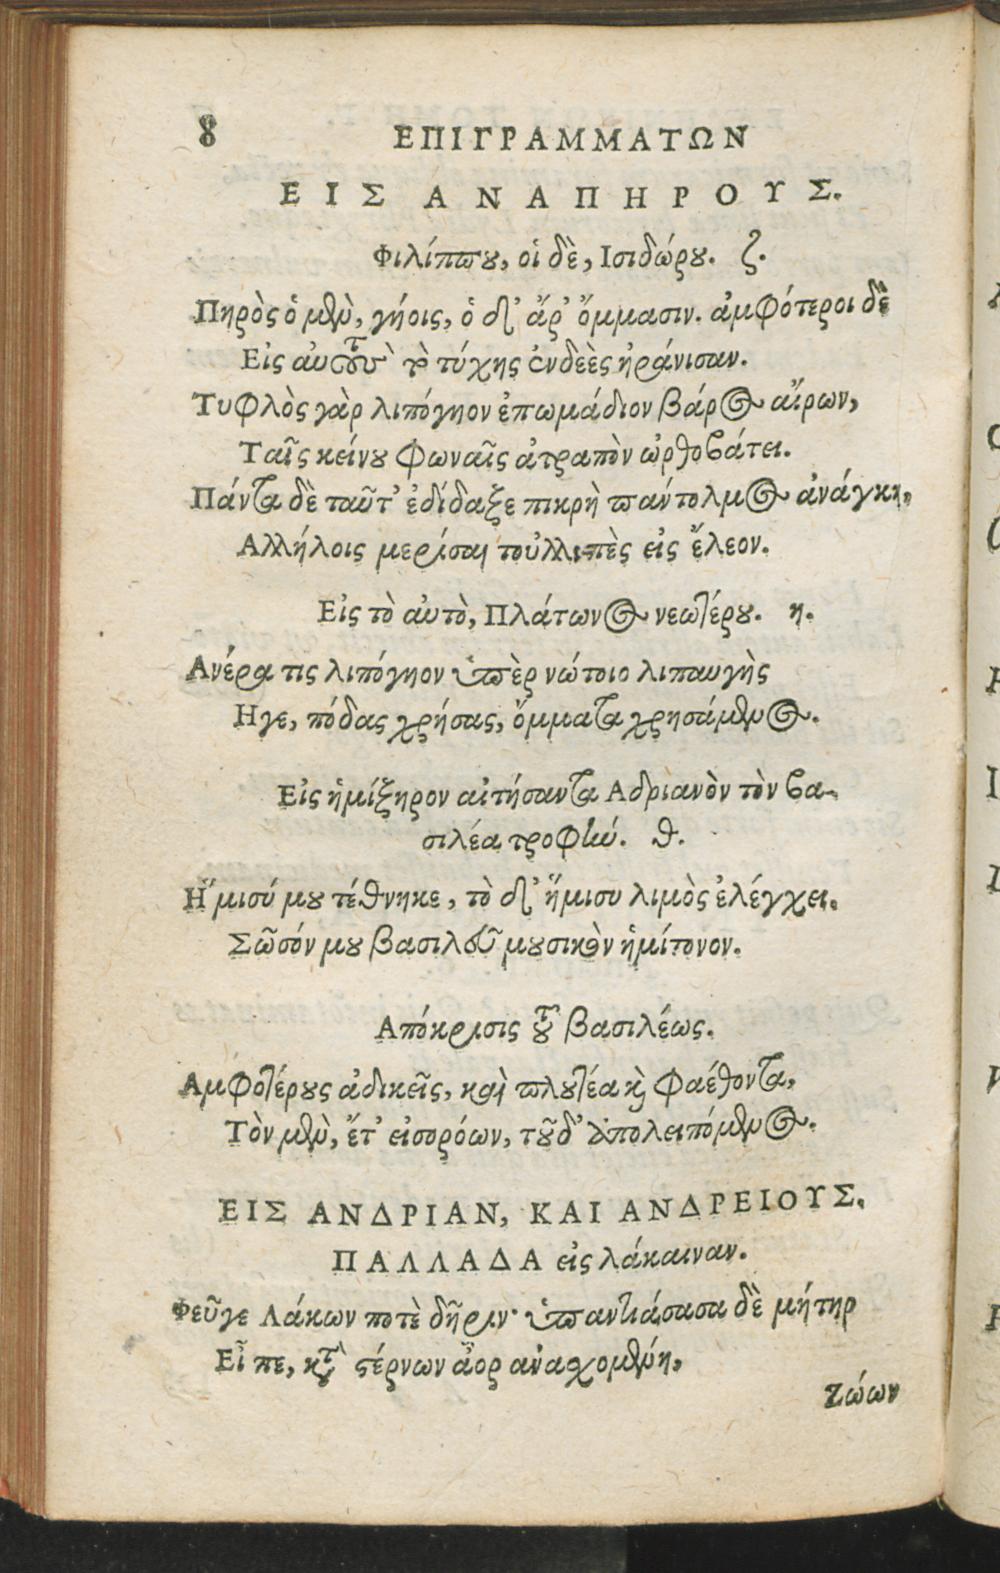 8 ΕΠΙΓΡΑΜΜΑΤΩΝ
ΕΙΣ ΑΝΑΠΗΡΟΥΣ.
Φιλίππου, οἱ δὲ, Ισιδώρου. ζ.
Πηρὸς ὁ μὲν, γήοις, ὁ δ' ἄρ' ὄμμασιν. ἀμφότεροι δὲ
Εἰς αὑτοὺς τὸ τύχης ἐνδεὲς ἠράνισαν.
Τυφλὸς γὰρ λιπόγηον ἐπωμάδιον βάρος αἴρων,
Ταῖς κείνου φωναῖς ἀτραπὸν ὠρθοβάτει.
Πάντα δὲ ταῦτ' ἐδίδαξε πικρὴ πάντολμος ἀνάγκη,
Αλλήλοις μερίσαι τοὐλλιπὲς εἰς ἔλεον.
Εἰς τὸ αὐτὸ, Πλάτωνος νεωτέρου. η.
Ανέρα τις λιπόγηον ὑπὲρ νώτοιο λιπαυγὴς
Ηγε, πόδας χρήσας, ὄμματα χρησάμενος.
Εἰς ἡμίξηρον αἰτήσαντα Αδριανὸν τὸν βα-
σιλέα τροφήν. θ.
Ημισύ μου τέθνηκε, τὸ δ' ἥμισυ λιμὸς ἐλέγχει.
Σῶσόν μου βασιλεῦ μουσικὸν ἡμίτονον.
Απόκρισις τοῦ βασιλέως.
Αμφοτέρους ἀδικεῖς, καὶ πλουτέα καὶ φαέθοντα,
Τὸν μὲν, ἔτ' εἰσορόων, τοῦ δ' ἀπολειπόμενος.
ΕΙΣ ΑΝΔΡΙΑΝ, ΚΑΙ ΑΝΔΡΕΙΟΥΣ.
ΠΑΛΛΑΔΑ εἰς λάκαιναν.
Φεῦγε Λάκων ποτὲ δῆριν· ὑπαντιάσασα δὲ μήτηρ
Εἶπε, κατὰ στέρνων ἄορ ἀναχομένη,
Ζώων